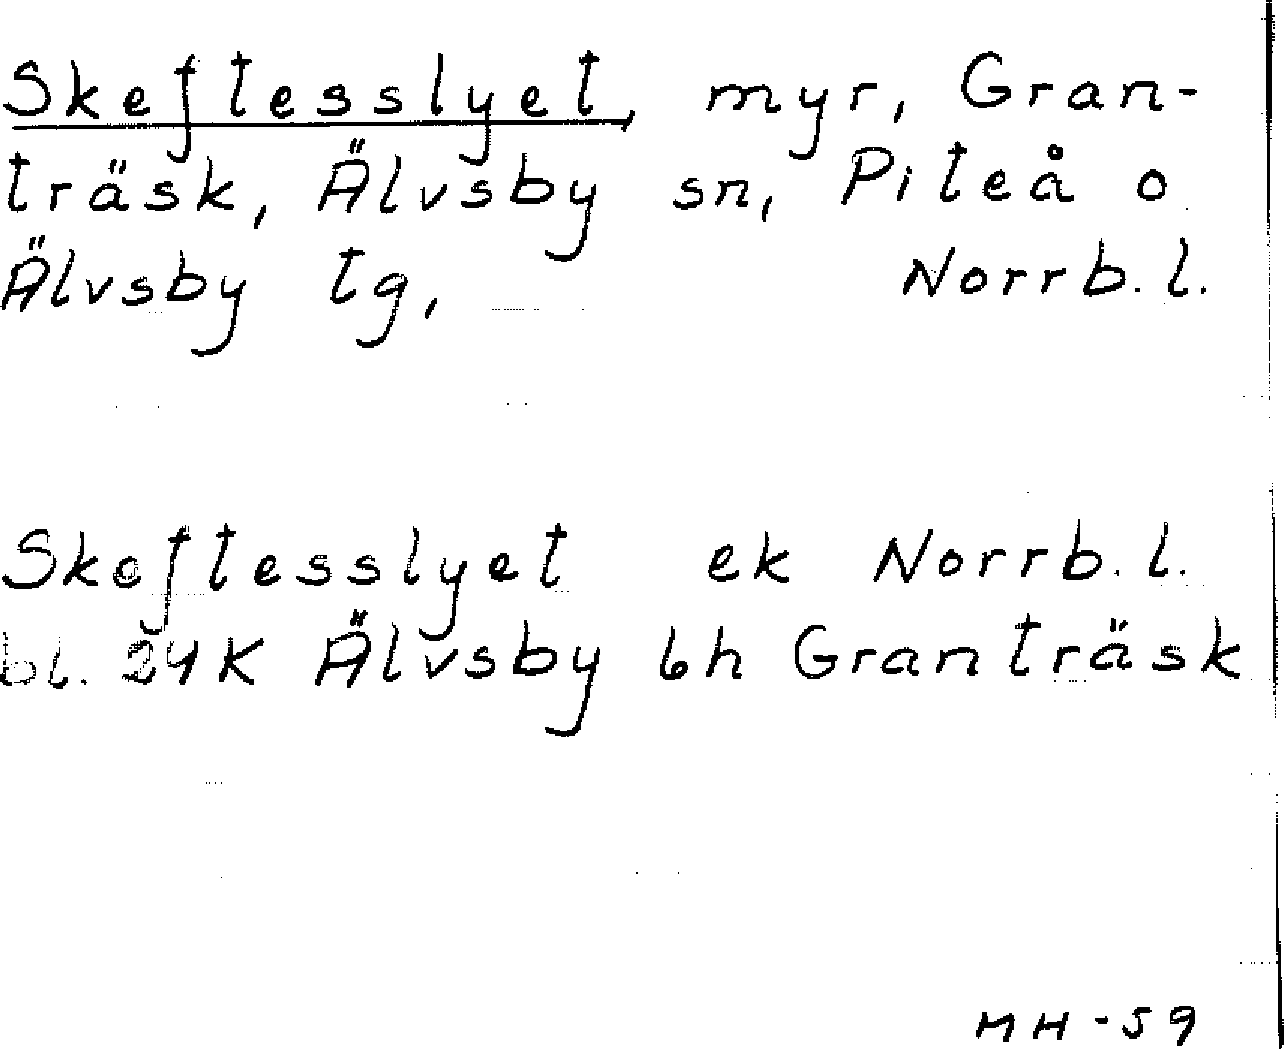 Skeftesslyet, myr, Gran-
träsk, Älvsby sn, Piteå o
Älvsby tg, Norrb. l.
Skeftesslyet ek Norrb. l.
bl. 24K Älvsby 6h Granträsk
MH-59